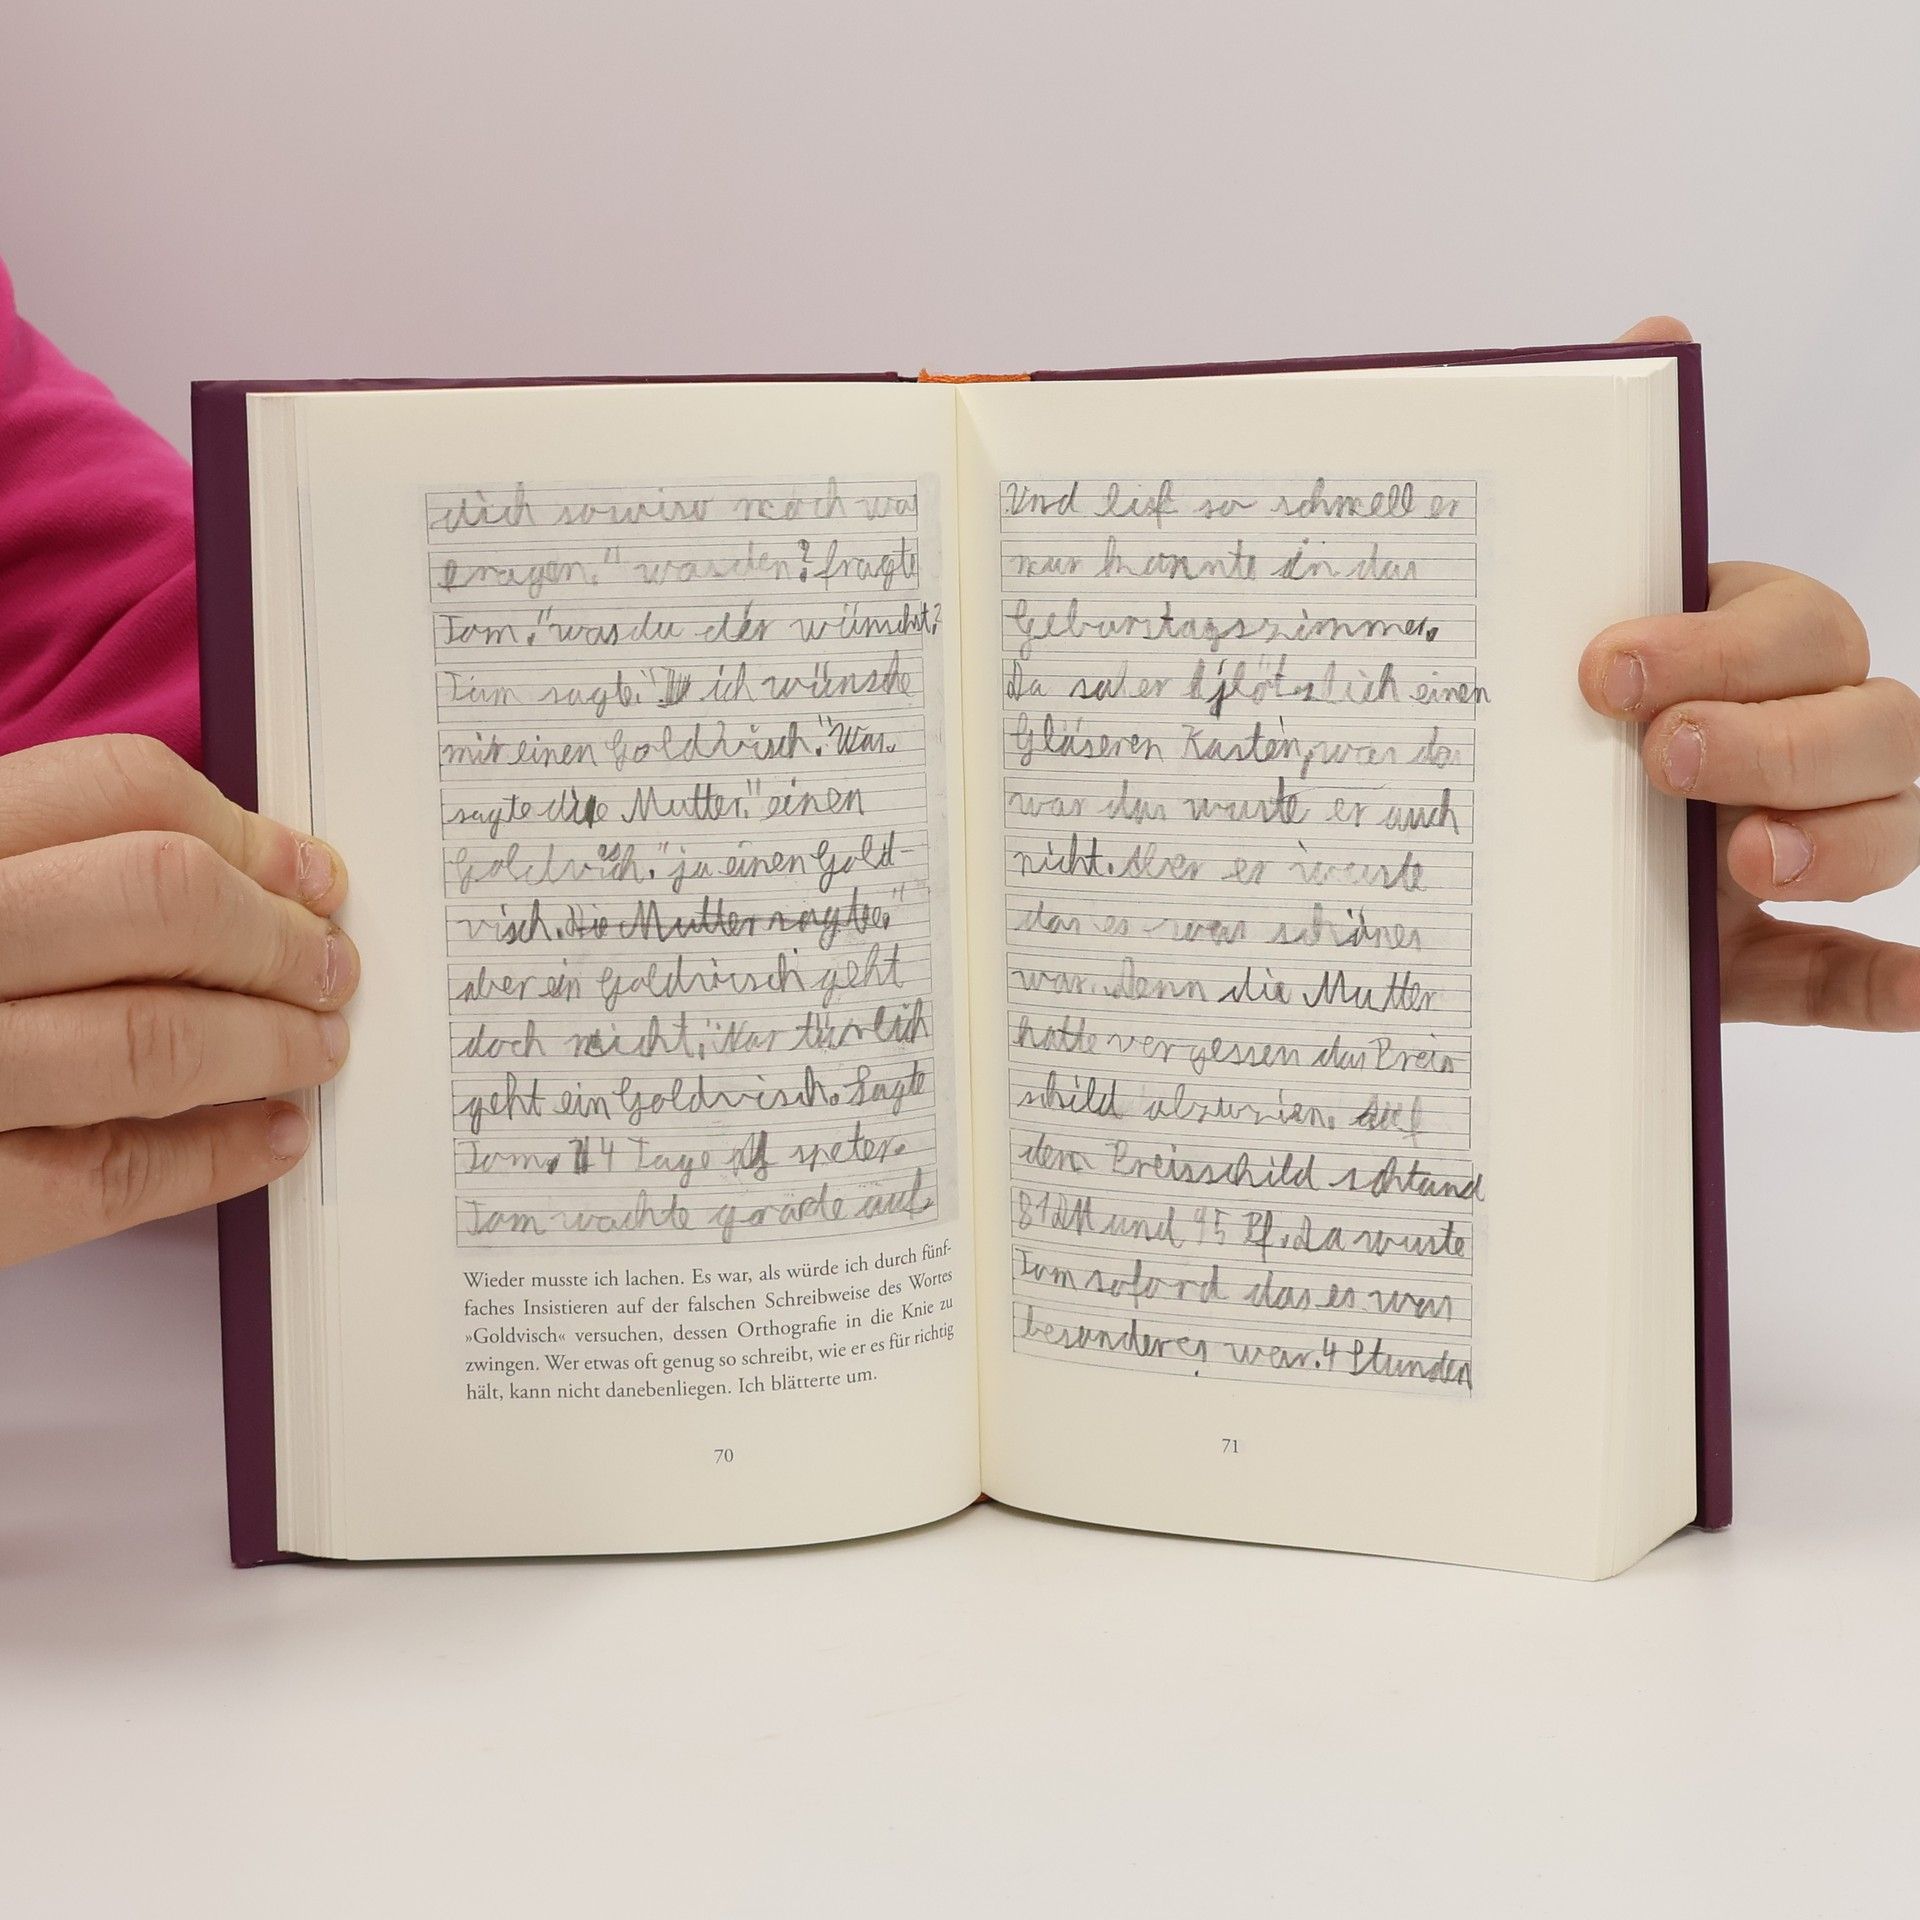 dich sowiso noch was
eragen." wasden? fragte
Tom."was du dér wünschst?
Tom sagte:" ich wünsche
mir einen Goldvisch." Was.
sagte die Mutter." einen
Goldvisch." ja einen Gold-
visch. Die Mutter sagte."
aber ein Goldvisch geht
doch nicht." Nartürlich
geht ein Goldvisch. Sagte
Tom. 14 Tage speter.
Tom wachte gerade auf.
Wieder musste ich lachen. Es war, als würde ich durch fünf-
faches Insistieren auf der falschen Schreibweise des Wortes
»Goldvisch« versuchen, dessen Orthografie in die Knie zu
zwingen. Wer etwas oft genug so schreibt, wie er es für richtig
hält, kann nicht danebenliegen. Ich blätterte um.
70
Und lief so schnell er
nur konnte in das
Geburstagszimmer.
Da sa er plötzlich einen
Gläseren Kasten, was da
war das wuste er auch
nicht. Aber er wuste
das es was schönes
war. Denn die Mutter
hatte vergessen das Preis
schild abzuzien. Auf
dem Preisschild schtand
81DM und 95 Pf. Da wuste
Tom soford das es was
besonderes war. 4 Stunden
71